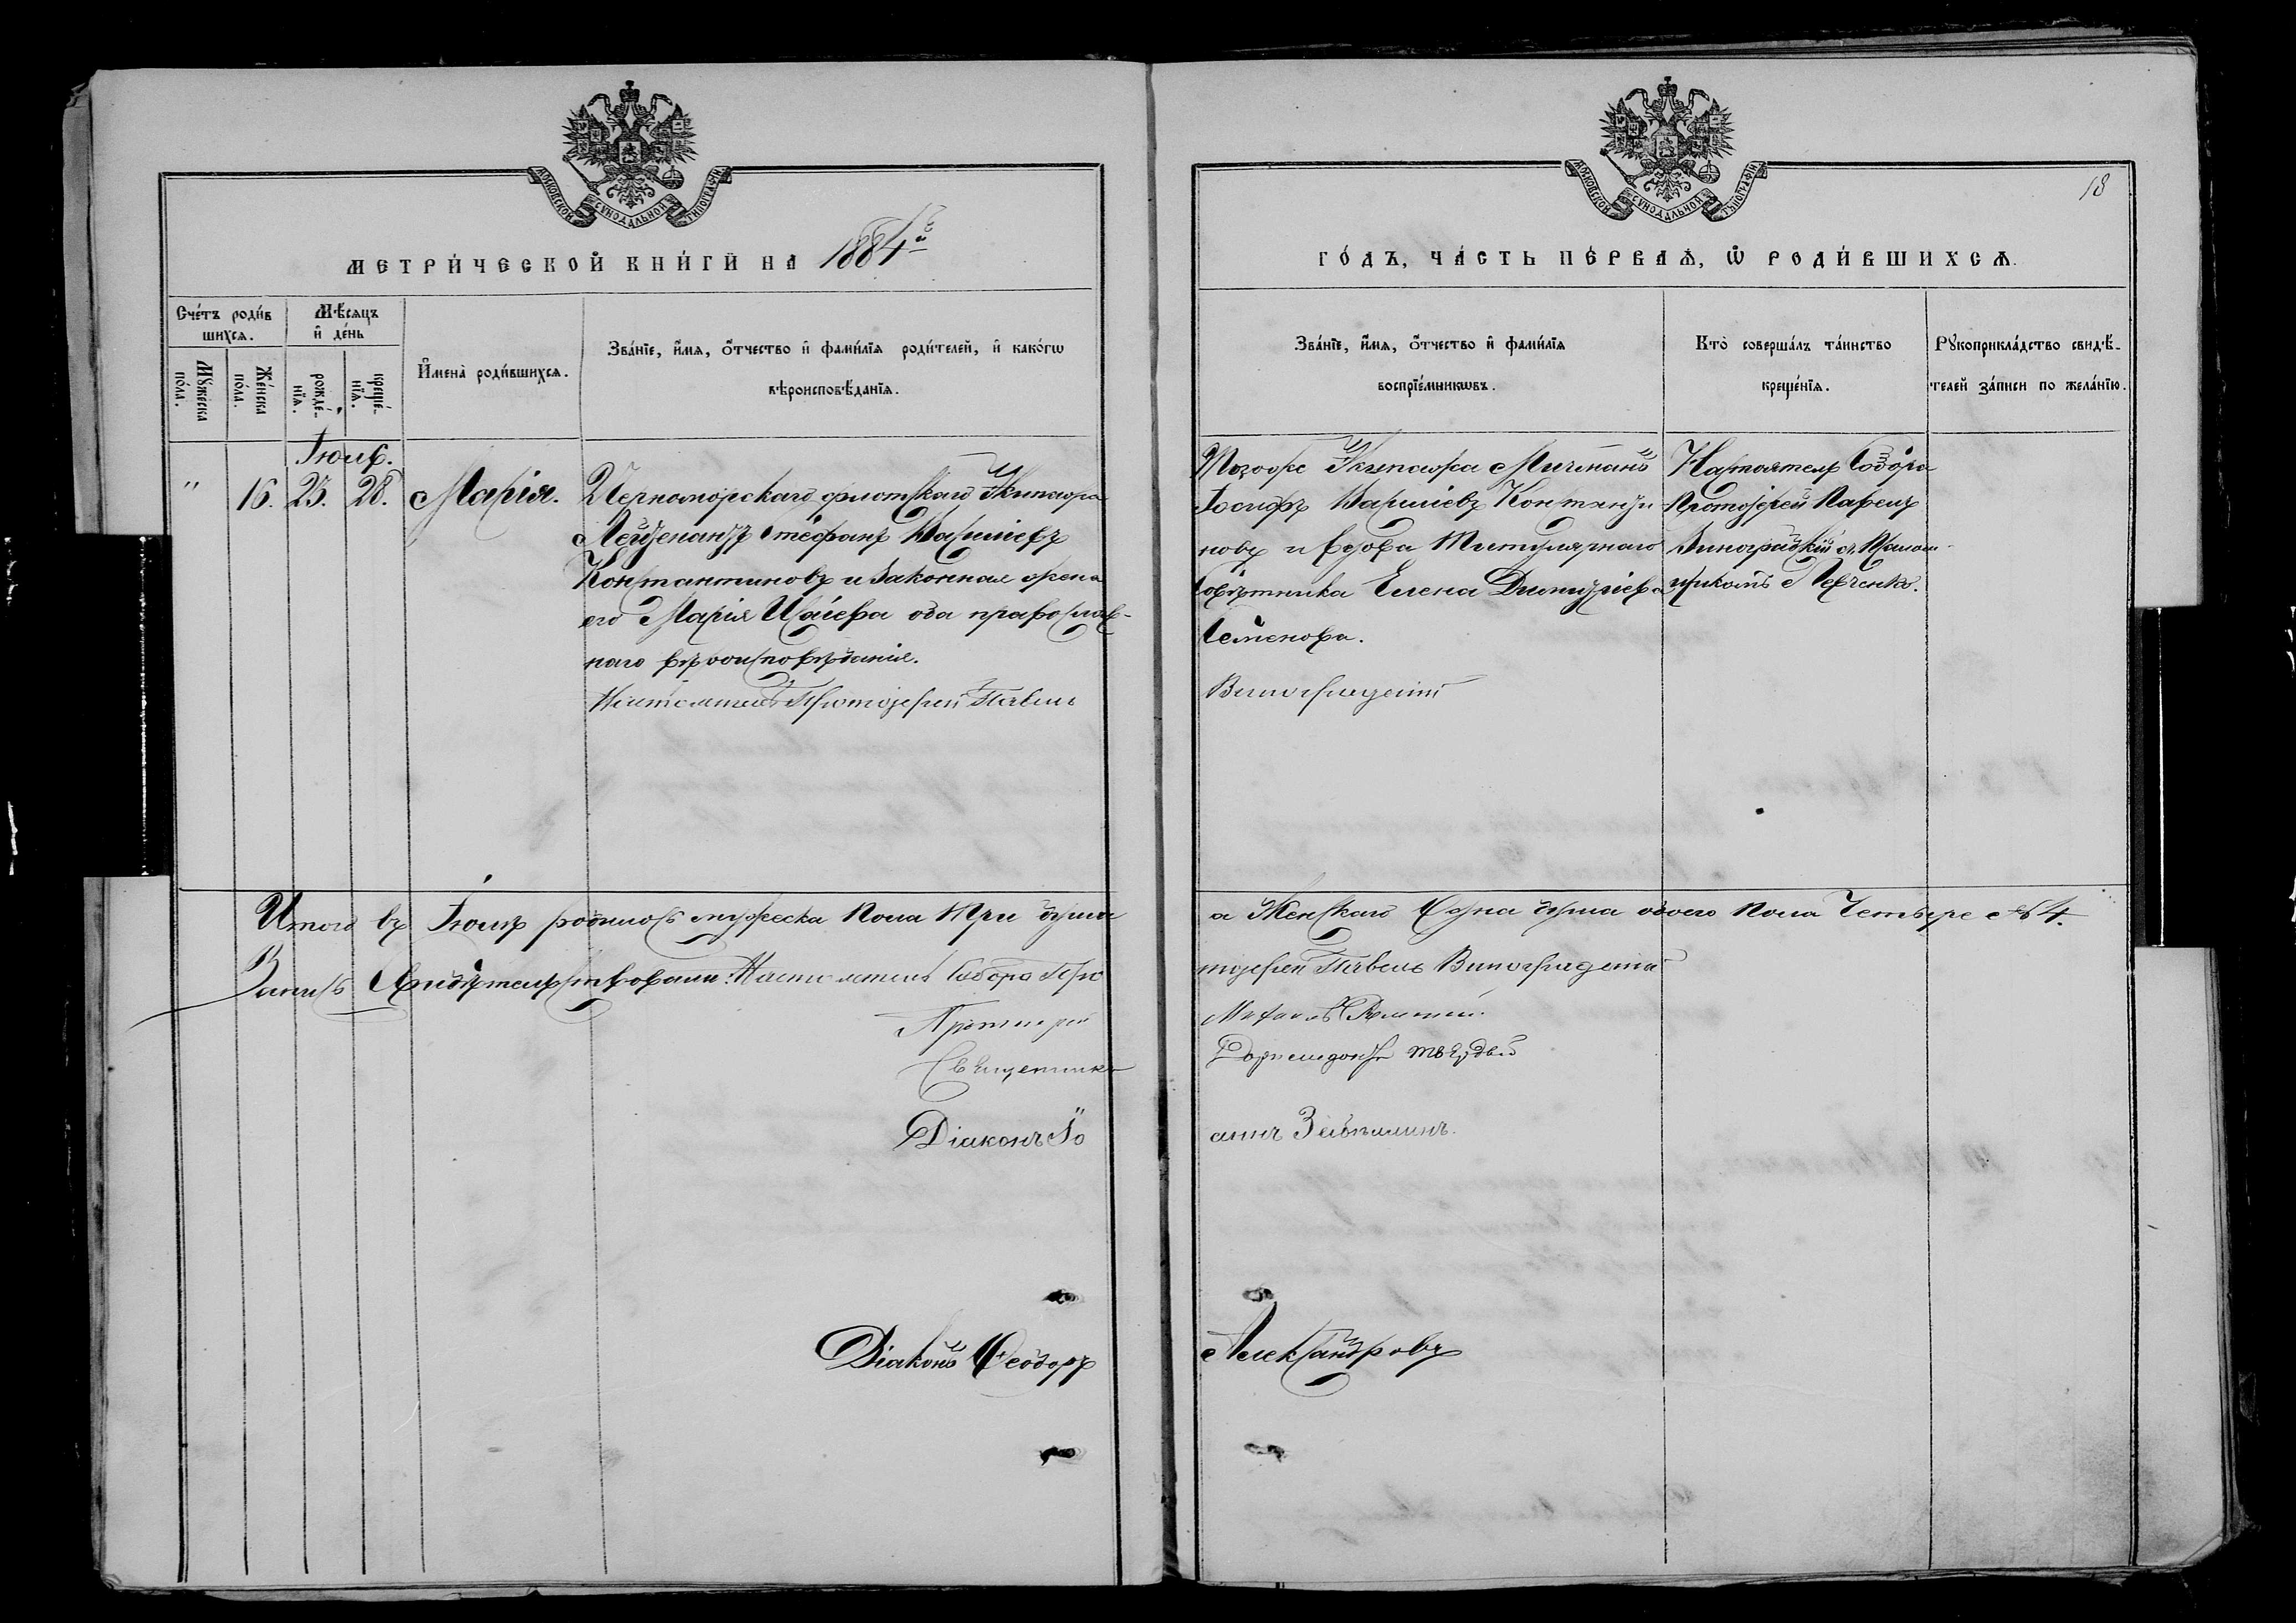 МОСКОВСКОЙ СѴНОДАЛЬНОЙ ТИПОГРАФІИ
МЕТРИ́ЧЕСКОЙ КНИ́ГИ НА 1884й
Сче́тъ роди́в
шихсѧ.
Мѣ́сѧцъ
и҆ де́нь
Мꙋ́жеска
по́ла.
Же́нска
по́ла.
рожде́-
нїѧ.
креще́-
нїѧ.
И҆мена̀ роди́вшихсѧ.
Зва́нїе, и҆́мѧ, о҆́тчество и҆ фами́лїѧ роди́телей, и҆ како́гѡ
вѣроисповѣ́данїѧ.
Іюль.
" 16. 23. 28. Марія.
Черноморскаго флотскаго Экипажа
Лейтенантъ Стефанъ Васильевъ
Константиновъ и законная жена
его Марія Исаіева оба православ-
наго вѣроисповѣданія.
Настоятель Протоіерей Павелъ
Итого въ Іюлѣ родилось мужеска пола три души
Запись свидѣтельствовали: Настоятель Собора Про
Протоіерей
Священникъ
Діаконъ Іо
Діаконъ Ѳеодоръ
МОСКОВСКОЙ СѴНОДАЛЬНОЙ ТИПОГРАФІИ
18
ГО́ДЪ, ЧА́СТЬ ПЕ́РВАѦ, Ѡ҆ РОДИ́ВШИХСѦ.
Зва́нїе, и҆́мѧ, о҆́тчество и҆ фами́лїѧ
воспрїе́мникѡвъ.
Кто̀ соверша́лъ та́инство
креще́нїѧ.
Рꙋкоприкла́дство свидѣ́-
телей за́писи по жела́нїю.
Тогоже Экипажа Мичманъ
Іосифъ Васильевъ Константи
новъ и вдова Титулярнаго
Совѣтника Елена Димитріева
Семенова.
Виноградскій
Настоятель Собора
Протоіерей Павелъ
Виноградскій съ Псалом-
щикомъ Левченко.
а Женскаго Одна душа обоего пола Четыре 4.
тоіерей Павелъ Виноградскій
Михаилъ
Доримедонтъ Твердый
аннъ
Александровъ